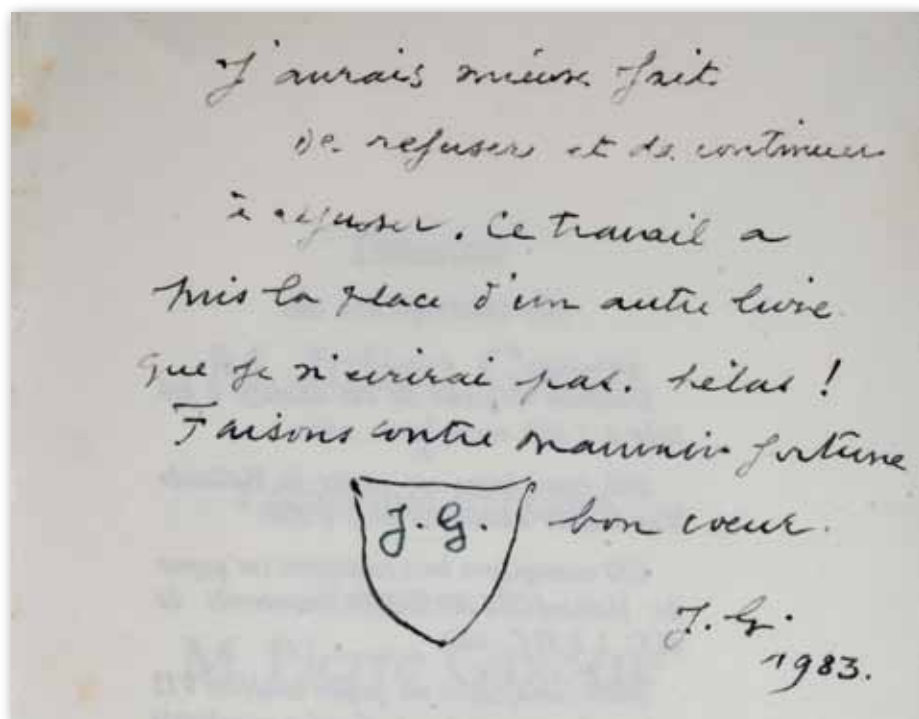 J'aurais mieux fait
de refuser et de continuer
à refuser. Ce travail a
pris la place d'un autre livre
que je n'écrirai pas. hélas !
Faisons contre mauvaise fortune
J.G. bon cœur.
J. G.
1983.